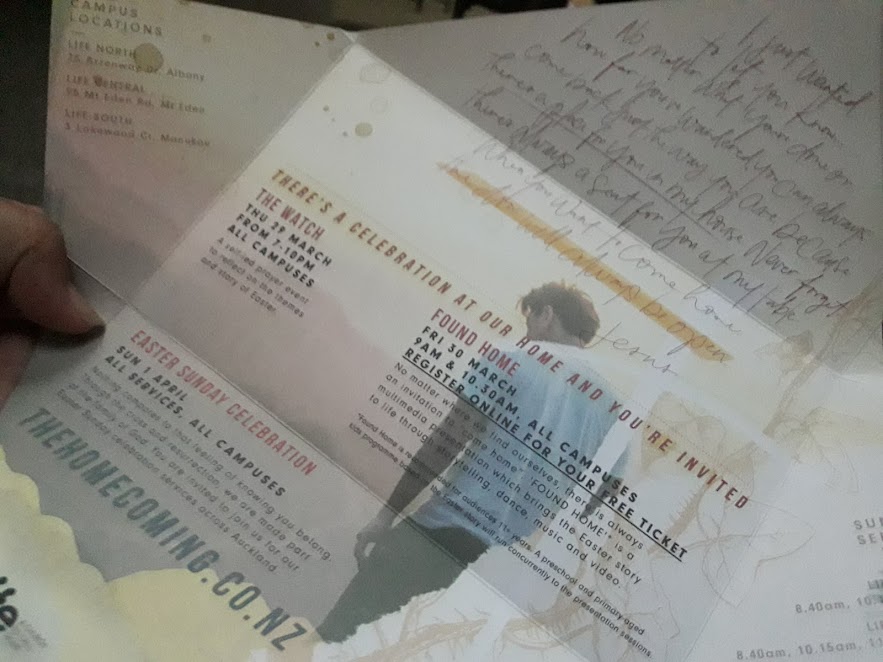 CAMPUS
LOCATIONS
LIFE NORTH
25 Arrenway Dr, Albany
LIFE CENTRAL
95 Mt Eden Rd, Mt Eden
LIFE SOUTH
5 Lakewood Ct, Manukau
I just wanted
to let you know
No matter what you've done or
how far you've wandered you can always
come back just the way you are because
there's a place for you in my house. Never forget
there's always a seat for you at my table
When you want to come home
always be open
Jesus
THERE'S A CELEBRATION AT OUR HOME AND YOU'RE INVITED
THE WATCH
THU 29 MARCH
FROM 7-10PM
ALL CAMPUSES
A selfled prayer event
to reflect on the themes
and story of Easter.
FOUND HOME
FRI 30 MARCH
9AM & 10.30AM, ALL CAMPUSES
REGISTER ONLINE FOR YOUR FREE TICKET
No matter where we find ourselves, there is always
an invitation to come home. "FOUND HOME"* is a
multimedia presentation which brings the Easter story
to life through storytelling, dance, music and video.
*Found Home is recommended for audiences 11+ years. A preschool and primary-aged
kids programme based on the Easter story will run concurrently to the presentation sessions.
EASTER SUNDAY CELEBRATION
SUN 1 APRIL
ALL SERVICES, ALL CAMPUSES
Nothing compares to that feeling of knowing you belong.
Through the cross and resurrection, we are made part
of the family of God. You are invited to join us for our
Easter Sunday celebration services across Auckland.
THEHOMECOMING.CO.NZ
life
SU
SE
8.40am, 10
LI
8.40am, 10.15am, 11